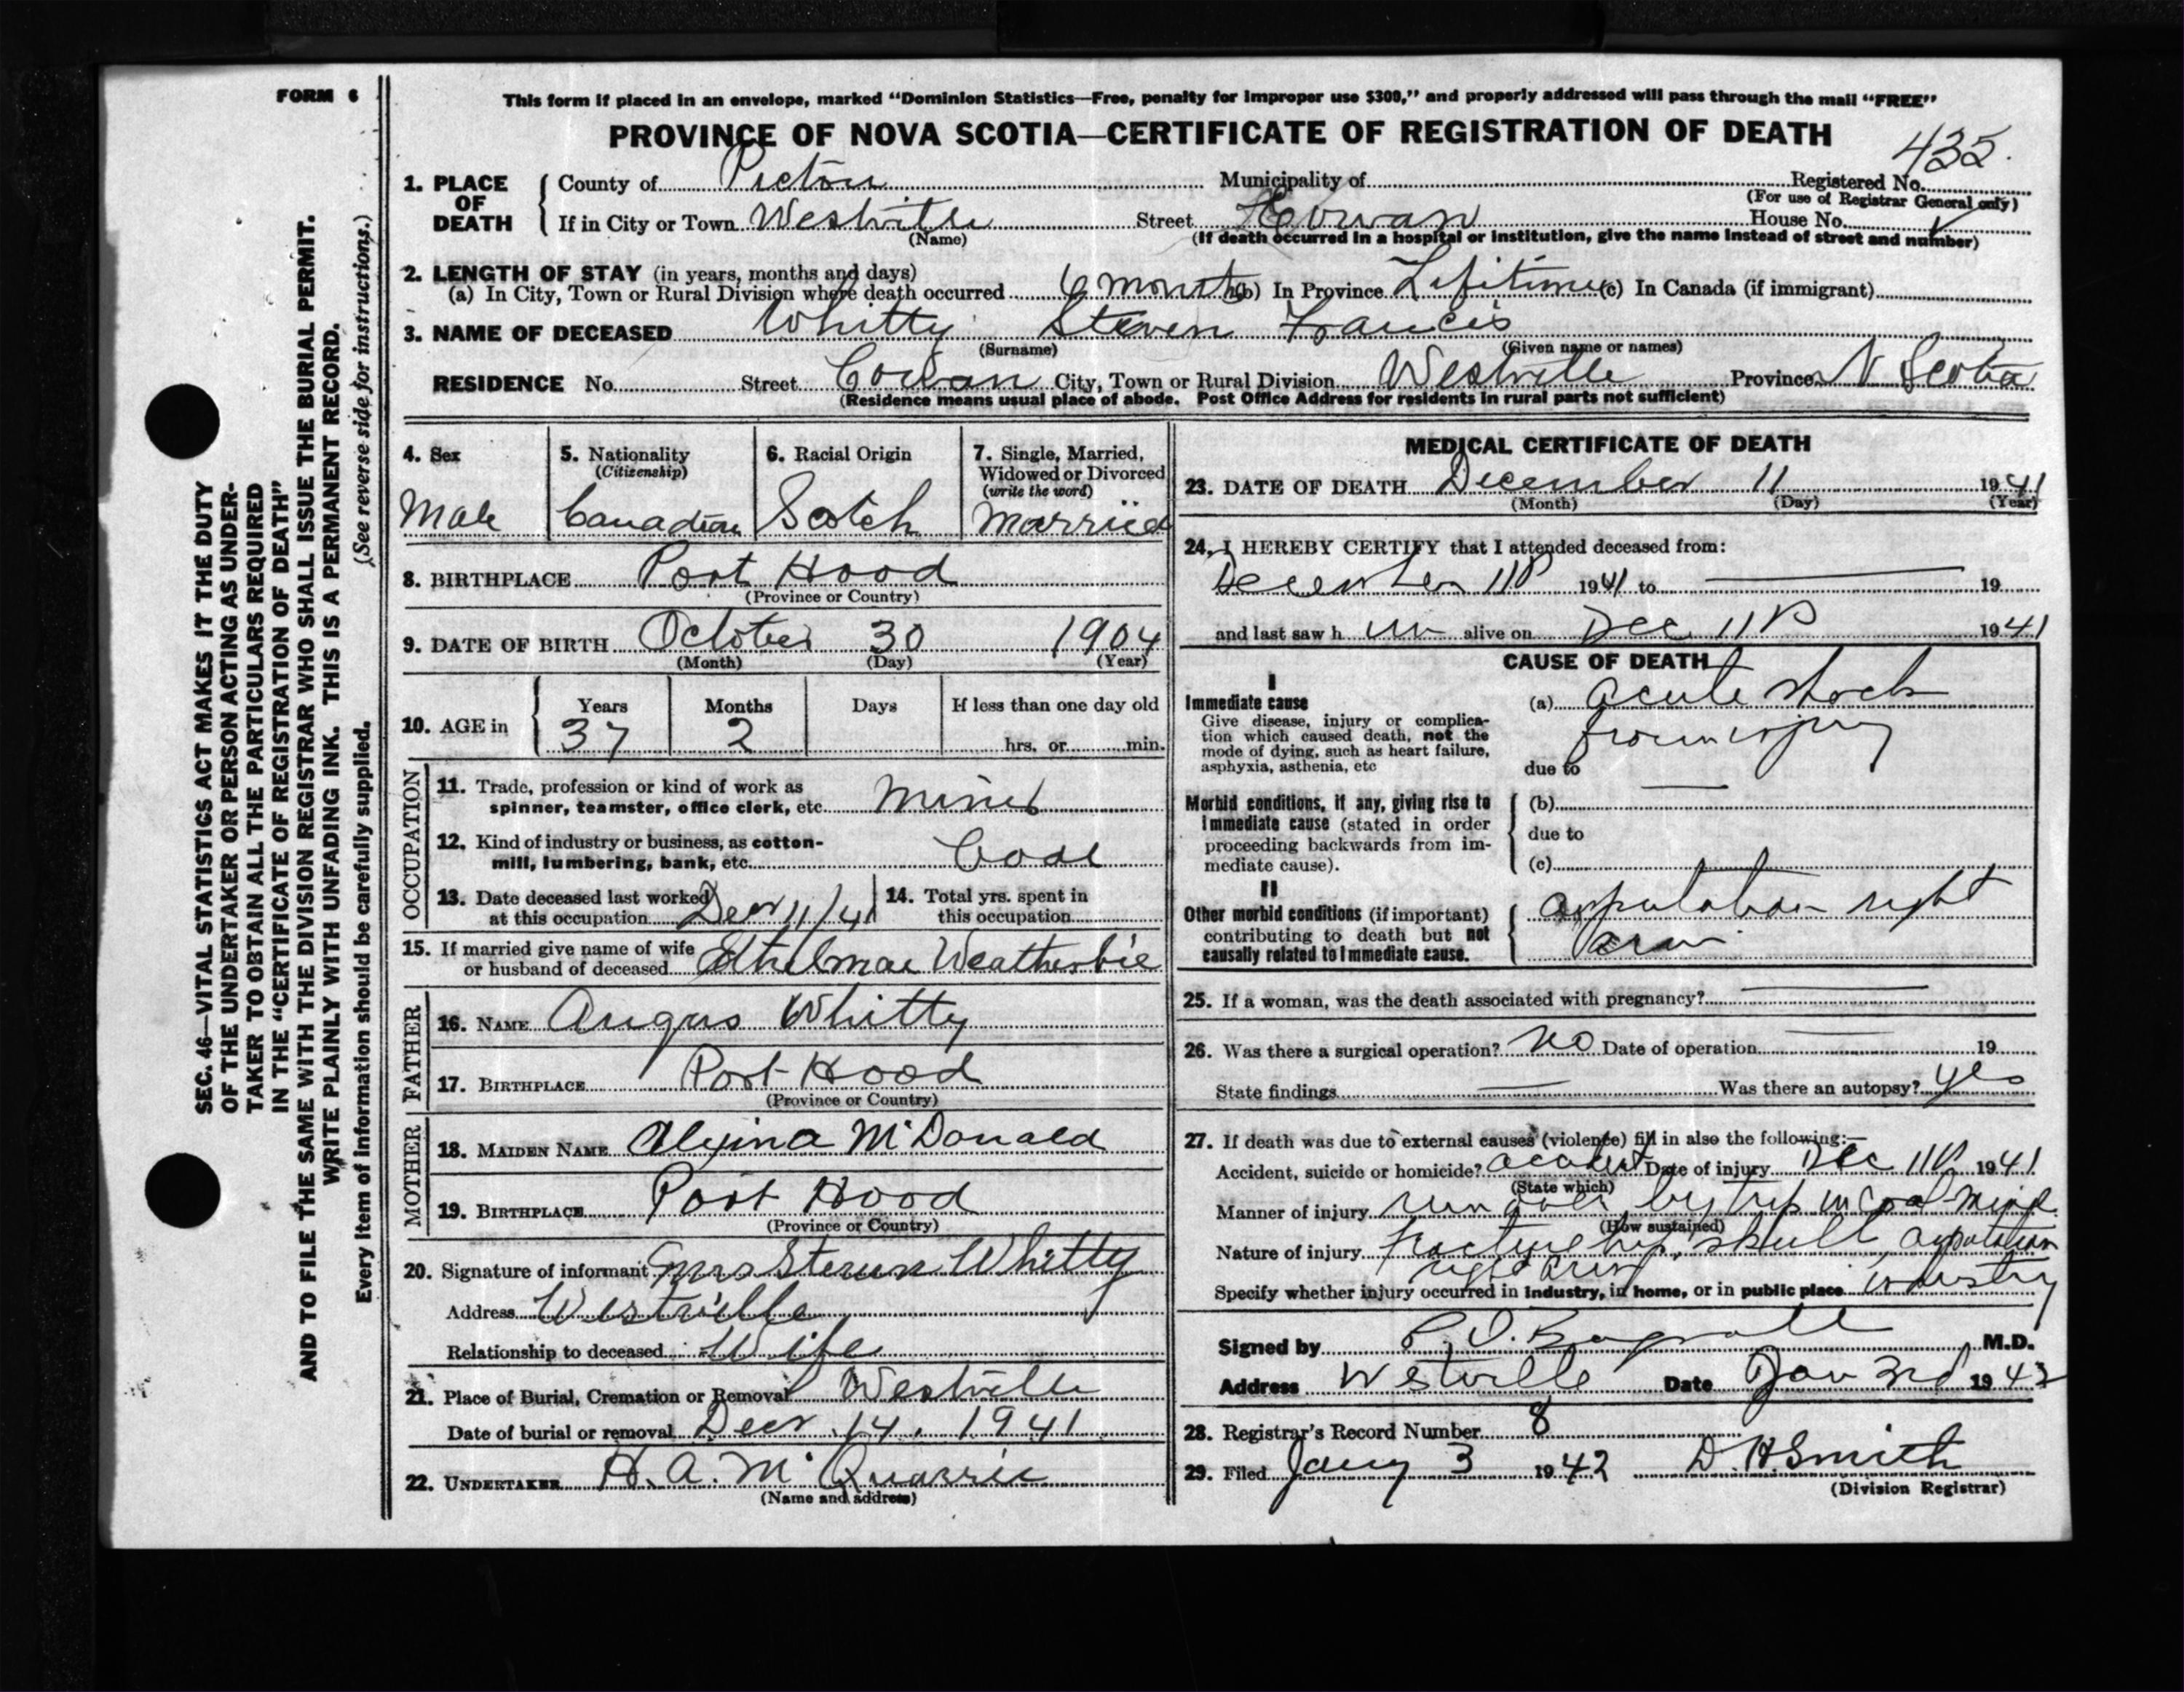 FORM 6
This form if placed in an envelope, marked “Dominion Statistics—Free, penalty for improper use $300,” and properly addressed will pass through the mail “FREE”
PROVINCE OF NOVA SCOTIA—CERTIFICATE OF REGISTRATION OF DEATH
435.
1. PLACE OF DEATH County of Pictou Municipality of Registered No.
(For use of Registrar General only)
If in City or Town Westville Street Cowan House No.
(Name) (If death occurred in a hospital or institution, give the name instead of street and number)
2. LENGTH OF STAY (in years, months and days)
(a) In City, Town or Rural Division where death occurred 6 months (b) In Province Lifetime (c) In Canada (if immigrant)
3. NAME OF DECEASED Whitty Steven Francis
(Surname) (Given name or names)
RESIDENCE No. Street Cowan City, Town or Rural Division Westville Province N Scotia
(Residence means usual place of abode. Post Office Address for residents in rural parts not sufficient)
4. Sex 5. Nationality (Citizenship) 6. Racial Origin 7. Single, Married, Widowed or Divorced (write the word)
Male Canadian Scotch Married
8. BIRTHPLACE Port Hood
(Province or Country)
9. DATE OF BIRTH October 30 1904
(Month) (Day) (Year)
10. AGE in Years Months Days If less than one day old
37 2 hrs. or min.
OCCUPATION
11. Trade, profession or kind of work as
spinner, teamster, office clerk, etc. Miner
12. Kind of industry or business, as cotton-
mill, lumbering, bank, etc. Coal
13. Date deceased last worked
at this occupation Decr 11/41
14. Total yrs. spent in
this occupation
15. If married give name of wife
or husband of deceased Ethelmae Weatherbie
FATHER
16. NAME Angus Whitty
17. BIRTHPLACE Port Hood
(Province or Country)
MOTHER
18. MAIDEN NAME McDonald
19. BIRTHPLACE Port Hood
(Province or Country)
20. Signature of informant Mrs Steven Whitty
Address Westville
Relationship to deceased Wife
21. Place of Burial, Cremation or Removal Westville
Date of burial or removal Decr 14, 1941
22. UNDERTAKER H. A. McQuarrie
(Name and address)
MEDICAL CERTIFICATE OF DEATH
23. DATE OF DEATH December 11 1941
(Month) (Day) (Year)
24. I HEREBY CERTIFY that I attended deceased from:
December 11 1941 to — 19
and last saw h im alive on Dec 11 1941
CAUSE OF DEATH
I
Immediate cause
Give disease, injury or complica-
tion which caused death, not the
mode of dying, such as heart failure,
asphyxia, asthenia, etc
(a) acute shock
from injury
due to
Morbid conditions, if any, giving rise to
immediate cause (stated in order
proceeding backwards from im-
mediate cause).
(b) —
due to
(c)
II
Other morbid conditions (if important)
contributing to death but not
causally related to immediate cause.
amputation right
arm
25. If a woman, was the death associated with pregnancy? —
26. Was there a surgical operation? No Date of operation — 19
State findings — Was there an autopsy? yes
27. If death was due to external causes (violence) fill in also the following:—
Accident, suicide or homicide? accident Date of injury Dec 11 1941
(State which)
Manner of injury run over by trip in coal mine
(How sustained)
Nature of injury fracture hip, skull, amputation
right arm
Specify whether injury occurred in industry, in home, or in public place industry
Signed by M.D.
Address Westville Date Jan 3rd 1942
28. Registrar's Record Number 8
29. Filed Jany 3 1942 D. H. Smith
(Division Registrar)
SEC. 46—VITAL STATISTICS ACT MAKES IT THE DUTY
OF THE UNDERTAKER OR PERSON ACTING AS UNDER-
TAKER TO OBTAIN ALL THE PARTICULARS REQUIRED
IN THE “CERTIFICATE OF REGISTRATION OF DEATH”
AND TO FILE THE SAME WITH THE DIVISION REGISTRAR WHO SHALL ISSUE THE BURIAL PERMIT.
WRITE PLAINLY WITH UNFADING INK. THIS IS A PERMANENT RECORD.
Every item of information should be carefully supplied. (See reverse side for instructions.)